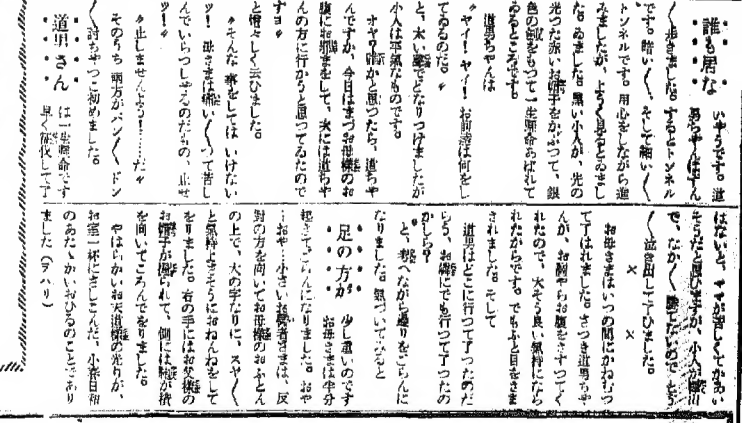 誰も居な
いやうです。道
〱歩きました。するとトンネル
です。暗い〱、そして細い〱
トンネルです。用心をしながら進
みましたが、ようく見るとゐまし
た。ゐました。黒い小人が、先の
光つた赤いお帽子をかぶつて、銀
色の劔をもつて一生懸命あばれて
ゐるところです。
道男ちやんは
〝ヤイ！ヤイ！お前達は何をし
てゐるのだ。〟
と、太い聲でどなりつけましたが
小人は平氣なものです。
オヤ？誰かと思つたら、道ちや
んですか、今日はまづお母様のお
腹にお邪まをして、次には道ちや
んの方に行かうと思つてゐたので
すヨ〟
と憎々しく云ひました。
〝そんな事をしてはいけない
ツ！母さまは痛い〱つて苦し
んでいらつしやるのだもの、止せ
ツ！〟
〝止しませんよう！……だ〟
そのうち両方がパン〱ドン
〱討ちやつこ初めました。
道男さん
は一生懸命です
早く征伐して了
はないと、ママが苦しくてかあい
そうだと思ひますが、小人が
で、なか〱勝てないので、とう
〱泣き出して了ひました。
× ×
お母さまはいつの間にかねむつ
て了はれました。さつき道男ちや
んが、お胸やらお腹をさすつてく
れたので、大そう良い氣持になら
れたからです。でもふと目をさま
されました。そして
道男はどこに行つて了つたのだ
らう、お縁にでも行つて了つたの
かしら？
と、考へながら邊りをごらんに
なりました。氣づいてみると
足の方が
少し重いのです
お母さまは半分
起きてごらんになりました。おや
…おや…小さいお使者さまは、反
對の方を向いてお母様のおふとん
の上で、大の字なりに、スヤ〱
と氣持よさそうにおねんねをして
をりました。右の手にはお父様の
お帽子が握られて、側には
を向いてころんでをりました。
やはらかいお天道様の光りが、
お室一杯にさしこんだ、小春日和
のあたゝかいおひるのことであり
ました（ヲハリ）